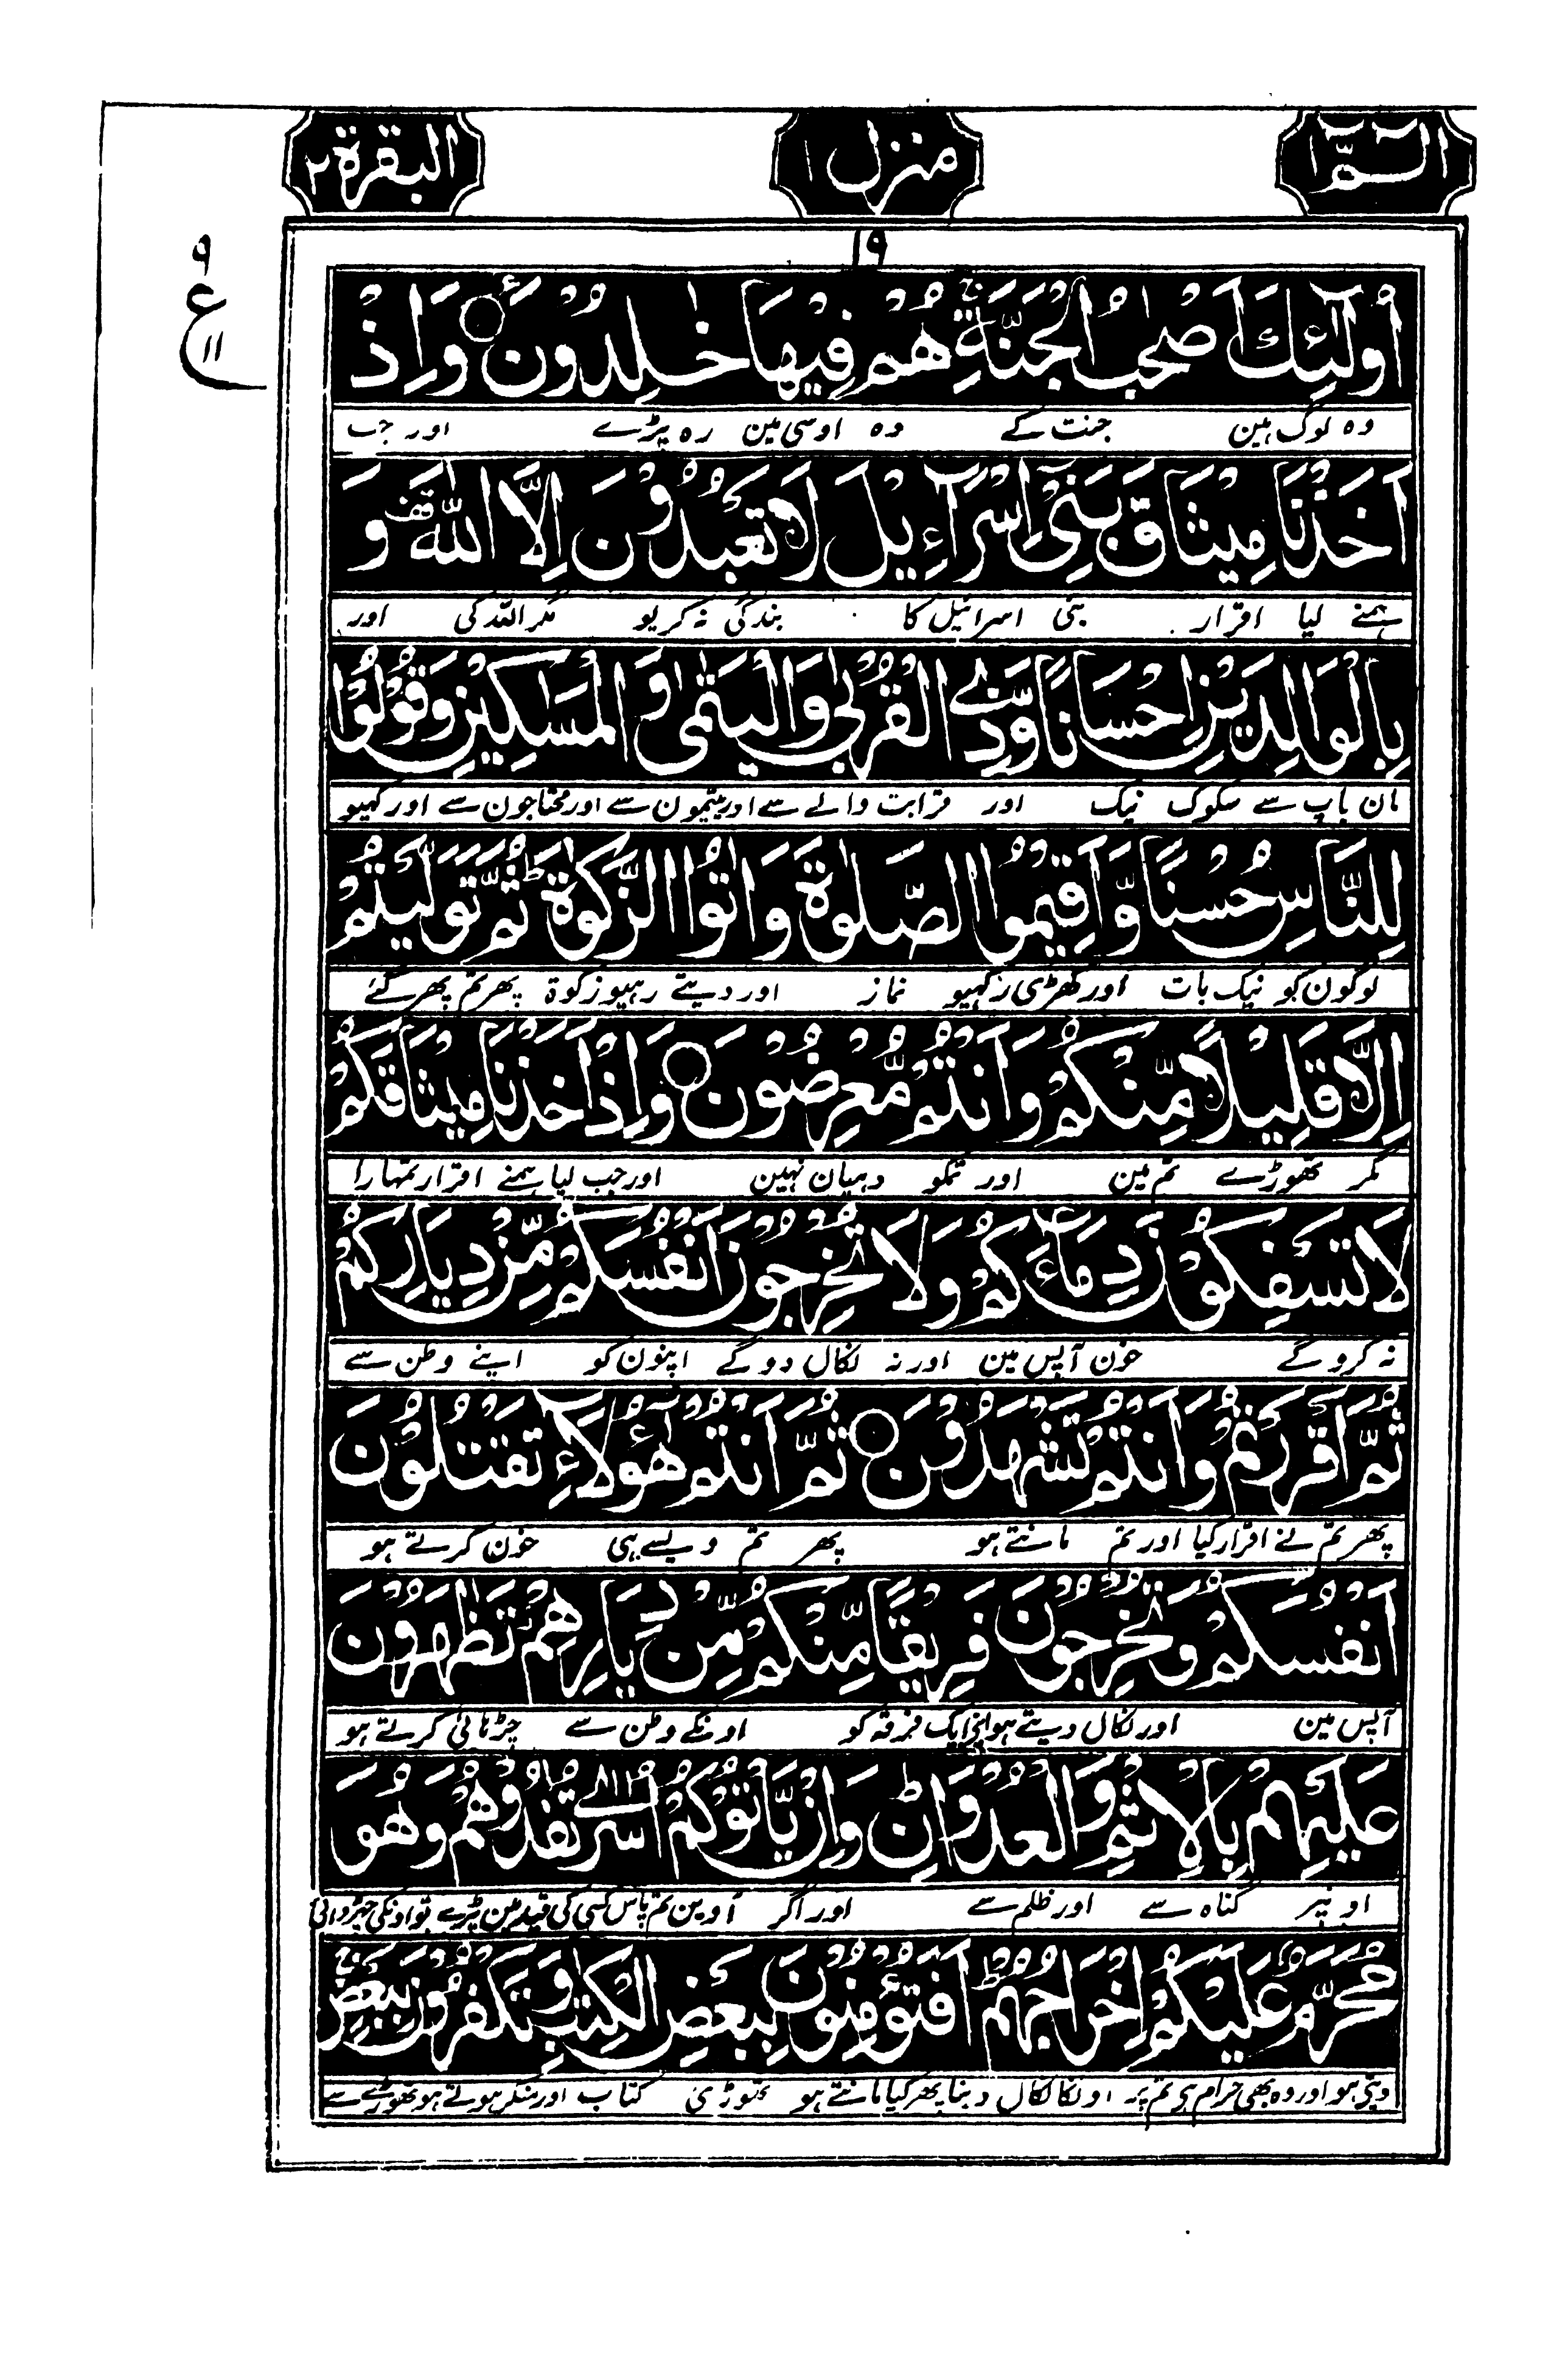 الٓمّٓ ١ منزل ١ البقرة ٢
١٩
٩
ع
١١
أُولٰٓئِكَ اَصْحٰبُ الْجَنَّةِ ۚ هُمْ فِيْهَا خٰلِدُوْنَ ۠ وَاِذْ
وہ لوگ ہین جنت کے وہ اوسی مین رہ پڑے اور جب
اَخَذْنَا مِيْثَاقَ بَنِىْٓ اِسْرَآءِيْلَ لَا تَعْبُدُوْنَ اِلَّا اللّٰهَ قف وَ
ہمنے لیا اقرار بنی اسرائیل کا بندگی نہ کریو مگر اللہ کی اور
بِالْوَالِدَيْنِ اِحْسَانًا وَّذِى الْقُرْبٰى وَالْيَتٰمٰى وَالْمَسٰكِيْنِ وَقُوْلُوْا
مان باپ سے سلوک نیک اور قرابت والے سے اور یتیمون سے اور محتاجون سے اور کہیو
لِلنَّاسِ حُسْنًا وَّاَقِيْمُوا الصَّلٰوةَ وَاٰتُوا الزَّكٰوةَ ؕ ثُمَّ تَوَلَّيْتُمْ
لوگون کو نیک بات اور کھڑی رکہیو نماز اور دیتے رہیو زکوۃ پھر تم پھر گئے
اِلَّا قَلِيْلًا مِّنْكُمْ وَاَنْتُمْ مُّعْرِضُوْنَ ۝ وَاِذْ اَخَذْنَا مِيْثَاقَكُمْ
مگر تھوڑے تم مین اور تمکو دہیان نہین اور جب لیا ہمنے اقرار تمہارا
لَا تَسْفِكُوْنَ دِمَآءَكُمْ وَلَا تُخْرِجُوْنَ اَنْفُسَكُمْ مِّنْ دِيَارِكُمْ
نہ کرو گے خون آپس مین اور نہ نکال دو گے اپنون کو اپنے وطن سے
ثُمَّ اَقْرَرْتُمْ وَاَنْتُمْ تَشْهَدُوْنَ ۝ ثُمَّ اَنْتُمْ هٰٓؤُلَآءِ تَقْتُلُوْنَ
پھر تم نے اقرار کیا اور تم مانتے ہو پھر تم ویسے ہی خون کرتے ہو
اَنْفُسَكُمْ وَتُخْرِجُوْنَ فَرِيْقًا مِّنْكُمْ مِّنْ دِيَارِهِمْ ز تَظٰهَرُوْنَ
آپس مین اور نکال دیتے ہو اپنے ایک فرقہ کو اونکے وطن سے چڑہائی کرتے ہو
عَلَيْهِمْ بِالْاِثْمِ وَالْعُدْوَانِ ؕ وَاِنْ يَّاْتُوْكُمْ اُسٰرٰى تُفٰدُوْهُمْ وَهُوَ
اونپر گناہ سے اور ظلم سے اور اگر آوین تم پاس کسی کی قید مین پڑے تو اونکی چھڑوائی
مُحَرَّمٌ عَلَيْكُمْ اِخْرَاجُهُمْ ؕ اَفَتُؤْمِنُوْنَ بِبَعْضِ الْكِتٰبِ وَتَكْفُرُوْنَ بِبَعْضٍ ۚ
دیتے ہو اور وہ بھی حرام ہی تم پر اونکا نکال دینا پھر کیا مانتے ہو تھوڑی کتاب اور منکر ہوتے ہو تھوڑے سے